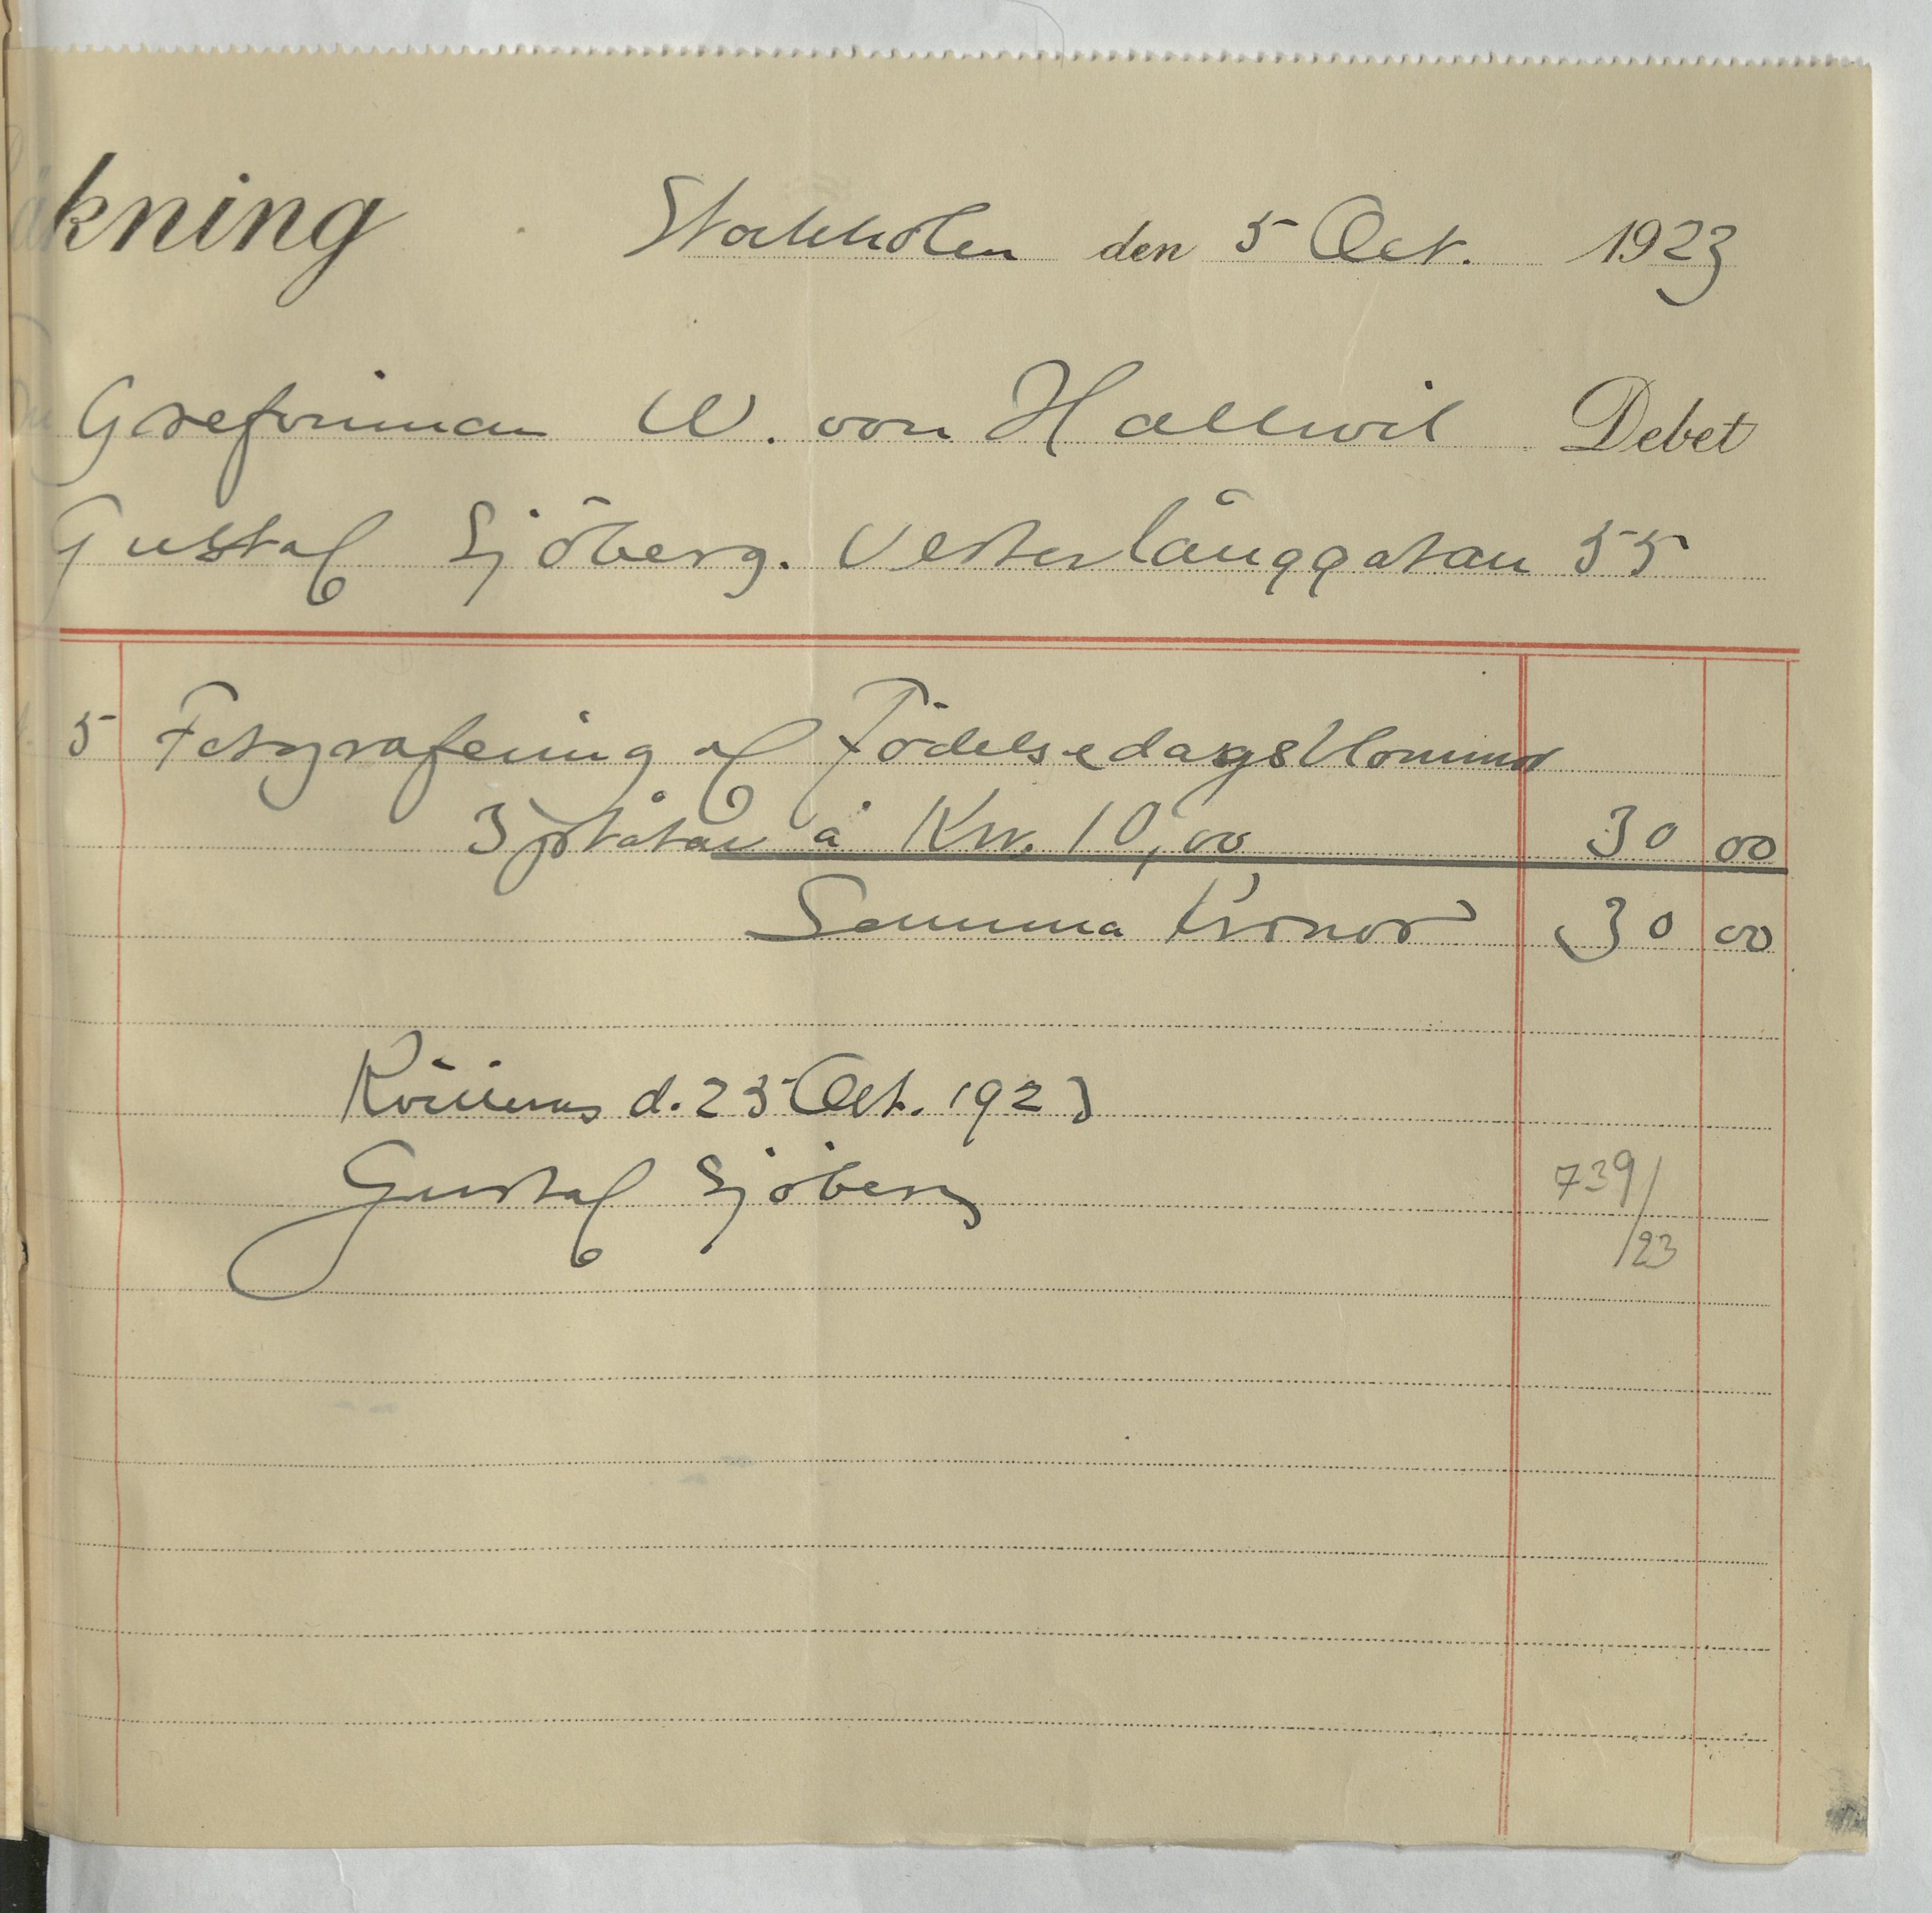 äkning Stockholm den 5 Oct. 1923
Grefvinnan W. von Hallwil Debet
Gustaf Sjöberg. Vesterlånggatan 55
5 Fotografering af Födelsedagsblommor
3 plåtar à Kr. 10,00 30 00
Summa Kronor 30 00
Kvitteras d. 25 Oct. 1923
Gustaf Sjöberg
739/23